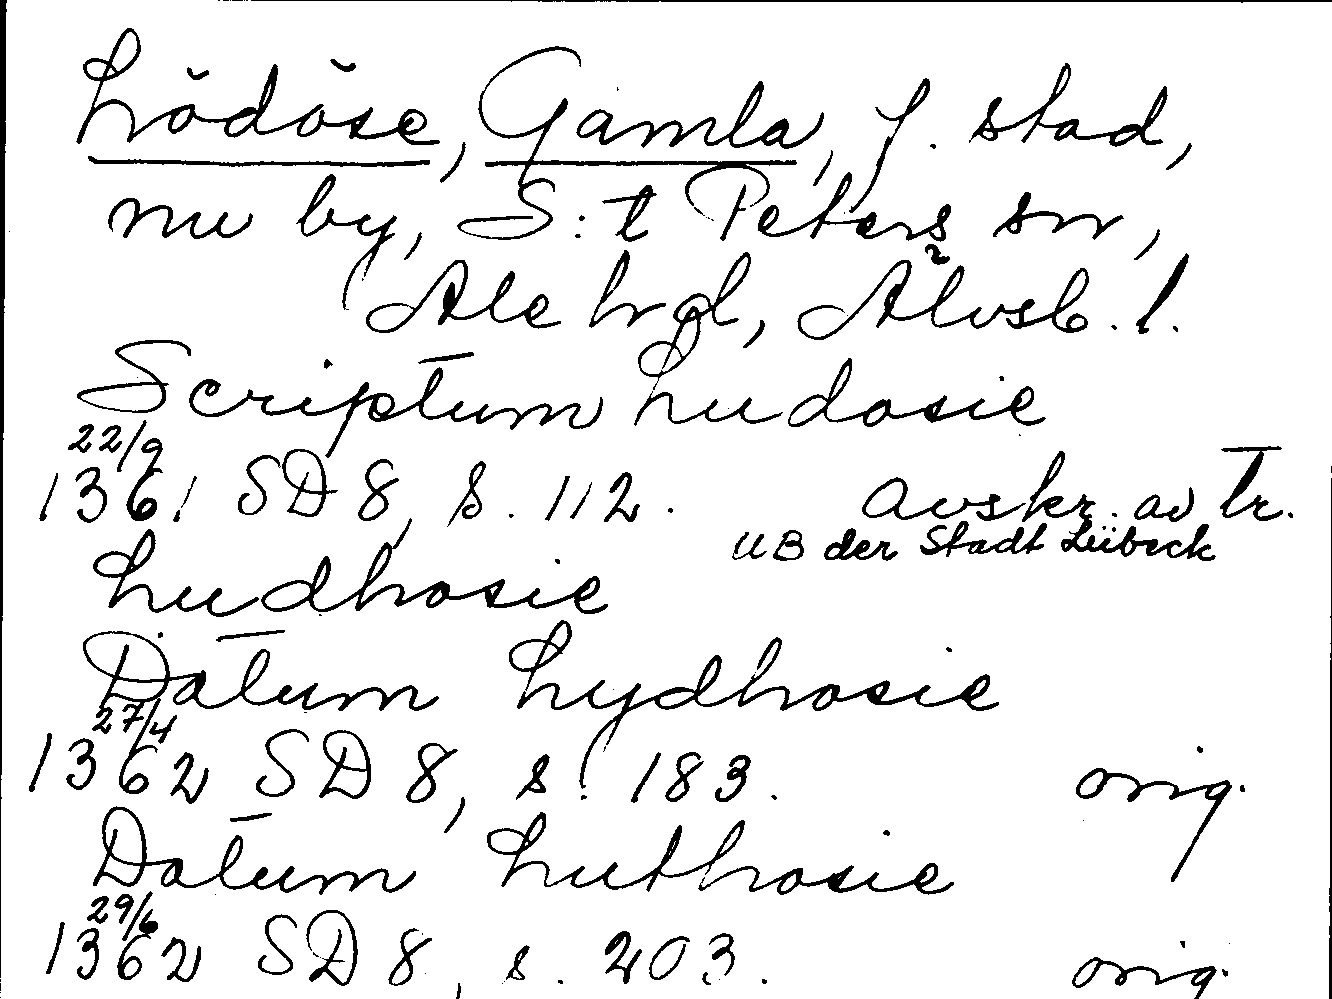 Lödöse, Gamla, f. stad,
nu by, S:t Peters sn,
Ale hd, Älvsb. l.
Scriptum Ludosie
22/9
1361 SD 8, s. 112. avskr. av tr.
UB der Stadt Lübeck
Ludhosie
Datum Lydhosie
27/4
1362 SD 8, s. 183. orig.
Datum Luthosie
29/6
1362 SD 8, s. 203. orig.